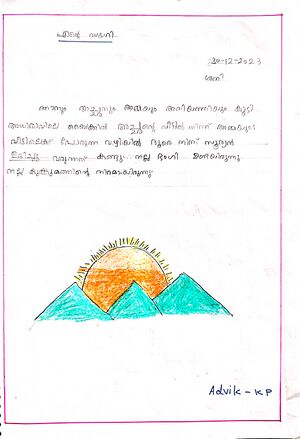 എന്റെ ഡയറി
30-12-2023
ശനി
ഞാനും അച്ഛനും അമ്മയും അനിയത്തിയും കൂടി
അതിരാവിലെ ബൈക്കിൽ അച്ഛന്റെ വീട്ടിൽ നിന്ന് അമ്മയുടെ
വീട്ടിലേക്ക് പോരുന്ന വഴിക്കിൽ ദൂരെ നിന്ന് സൂര്യൻ
ഉദിച്ചു വരുന്നത് കണ്ടു. നല്ല ഭംഗി ഉണ്ടായിരുന്നു
നല്ല കുങ്കുമത്തിന്റെ നിറമായിരുന്നു.
Advik - KP